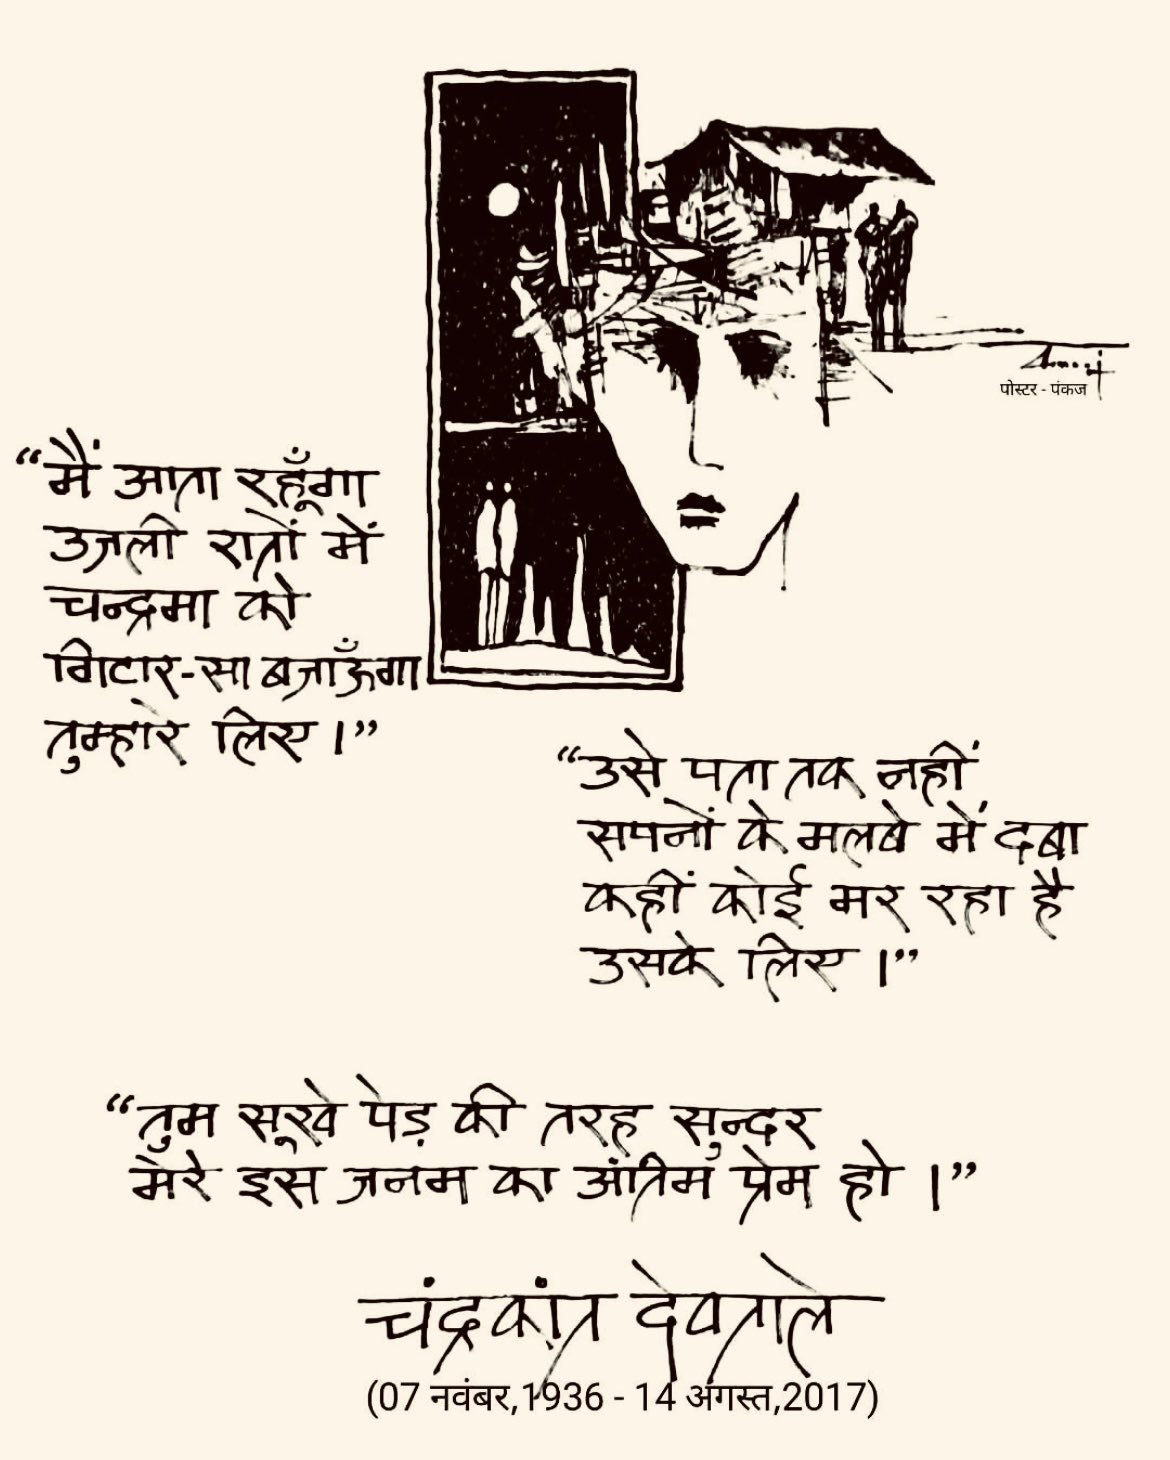 पोस्टर - पंकज
“मैं आता रहूँगा
उजली रातों में
चन्द्रमा को
गिटार-सा बजाऊँगा
तुम्हारे लिए ।”
“उसे पता तक नहीं
सपनों के मलबे में दबा
कहीं कोई मर रहा है
उसके लिए ।”
“तुम सूखे पेड़ की तरह सुन्दर
मेरे इस जनम का अंतिम प्रेम हो ।”
चंद्रकांत देवताले
(07 नवंबर,1936 - 14 अगस्त,2017)